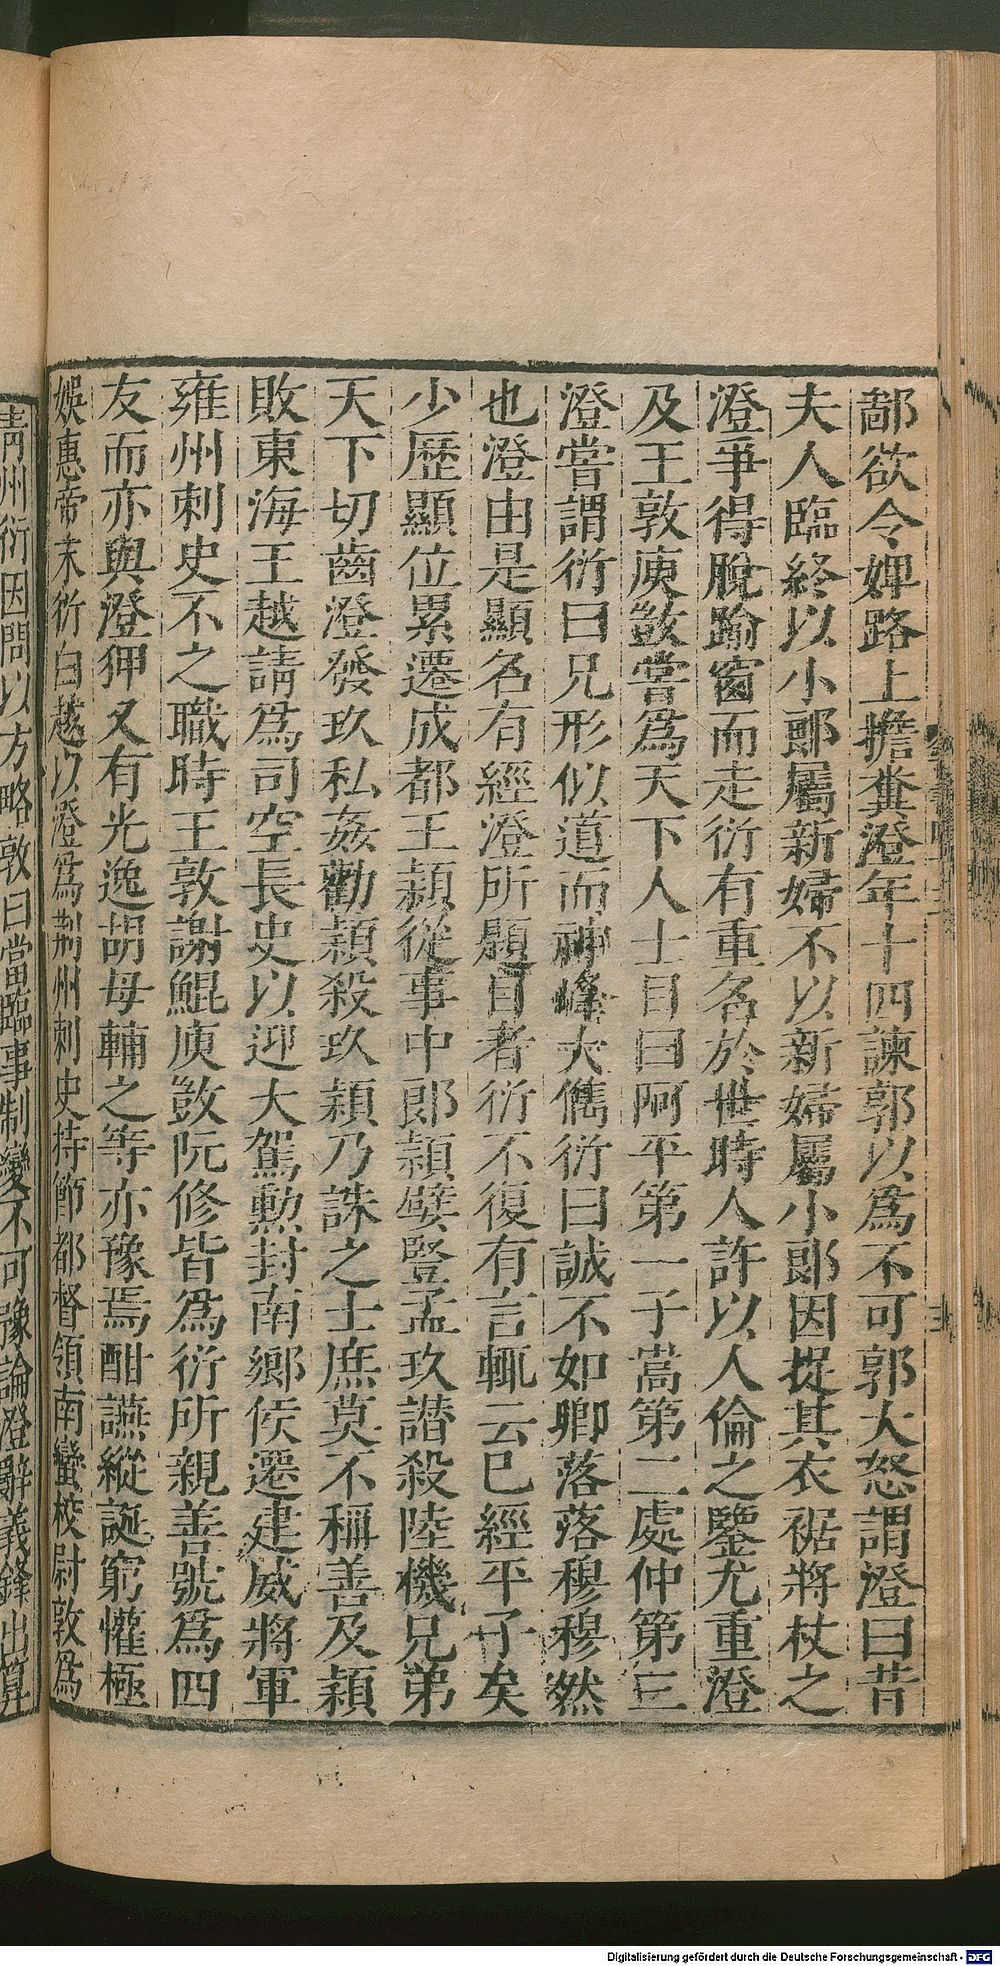 鄙欲令婢路上擔糞澄年十四諫郭以爲不可郭大怒謂澄曰昔
夫人臨終以小郎屬新婦不以新婦屬小郎因捉其衣裾將杖之
澄爭得脫踰窗而走衍有重名於世時人許以人倫之鑒尤重澄
及王敦庾敳嘗爲天下人士目曰阿平第一子嵩第二處仲第三
澄嘗謂衍曰兄形似道而神峰大儁衍曰誠不如卿落落穆穆然
也澄由是顯名有經澄所題目者衍不復有言輒云已經平子矣
少歷顯位累遷成都王穎從事中郎穎嬖豎孟玖譖殺陸機兄弟
天下切齒澄發玖私姦勸穎殺玖穎乃誅之士庶莫不稱善及穎
敗東海王越請爲司空長史以迎大駕勲封南鄉侯遷建威將軍
雍州刺史不之職時王敦謝鯤庾敳阮修皆爲衍所親善號爲四
友而亦與澄狎又有光逸胡母輔之等亦豫焉酣讌縱誕窮懽極
娛惠帝末衍白越以澄爲荆州刺史持節都督領南蠻校尉敦爲
青州衍因問以方略敦曰當臨事制變不可豫論澄辭義鋒出算
Digitalisierung gefördert durch die Deutsche Forschungsgemeinschaft - DFG